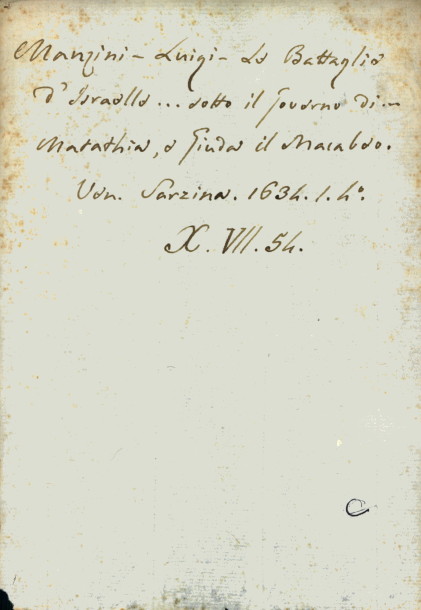 Manzini - Luigi - Le Battaglie
d'Israelle ... sotto il Governo di...
Matathia, e Giuda il Macabeo.
Ven. Sarzina. 1634. 1. 4°.
X. VII. 54.
C